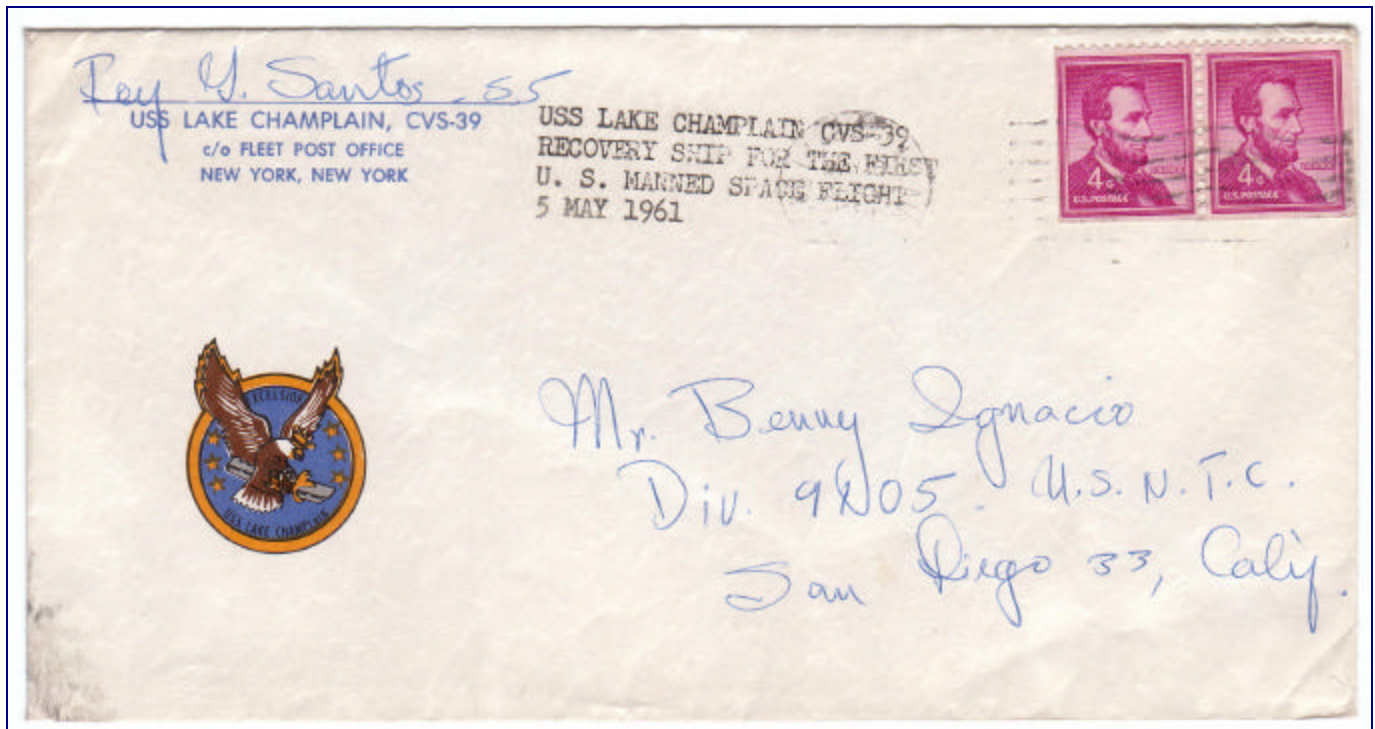 Roy G. Santos - SS
USS LAKE CHAMPLAIN, CVS-39
c/o FLEET POST OFFICE
NEW YORK, NEW YORK
USS LAKE CHAMPLAIN CVS-39
RECOVERY SHIP FOR THE FIRST
U. S. MANNED SPACE FLIGHT
5 MAY 1961
4¢
U.S.POSTAGE
4¢
U.S.POSTAGE
USS LAKE CHAMPLAIN
Mr. Benny Ignacio
Div. U.S.N.T.C.
San Diego 33, Calif.